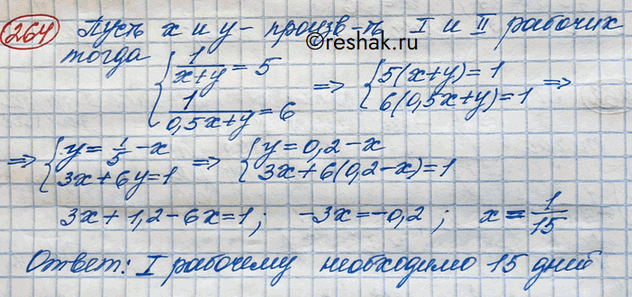 264 Пусть x и y - произв-ть I и II рабочих
©reshak.ru
тогда { 1/(x+y) = 5 ; 1/(0,5x+y) = 6 ⇒ { 5(x+y)=1 ; 6(0,5x+y)=1 ⇒
⇒ { y= 1/5 -x ; 3x+6y=1 ⇒ { y=0,2-x ; 3x+6(0,2-x)=1
3x+1,2-6x=1; -3x=-0,2; x= 1/15
Ответ: I рабочему необходимо 15 дней